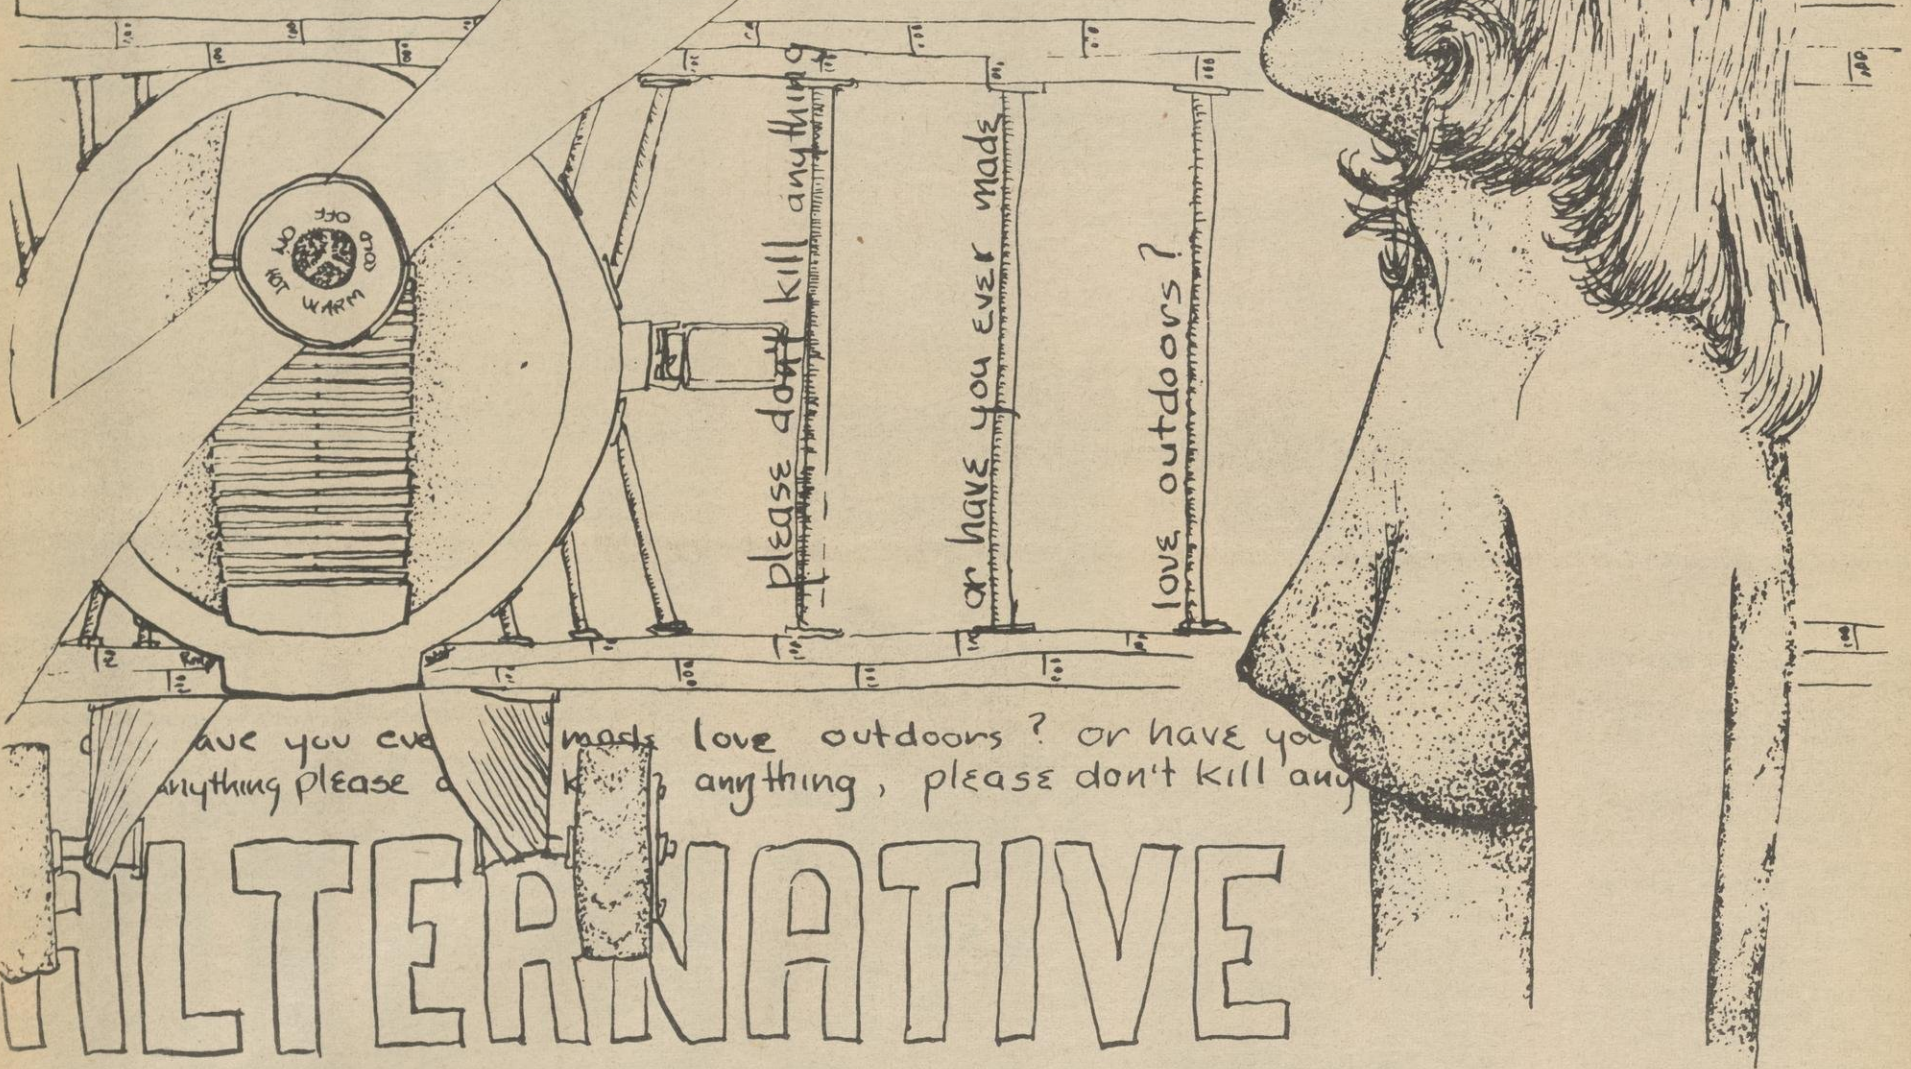 OFF
COLD
WARM
HOT
ON
please dont kill anything
or have you ever made
love outdoors?
ave you eve made love outdoors? or have yo
anything please d k anything, please don't kill any
ALTERNATIVE